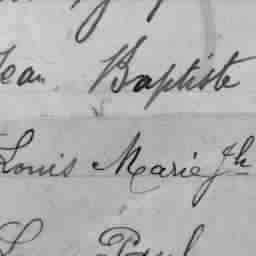 Jean Baptiste
Louis Marie Jh
Paul